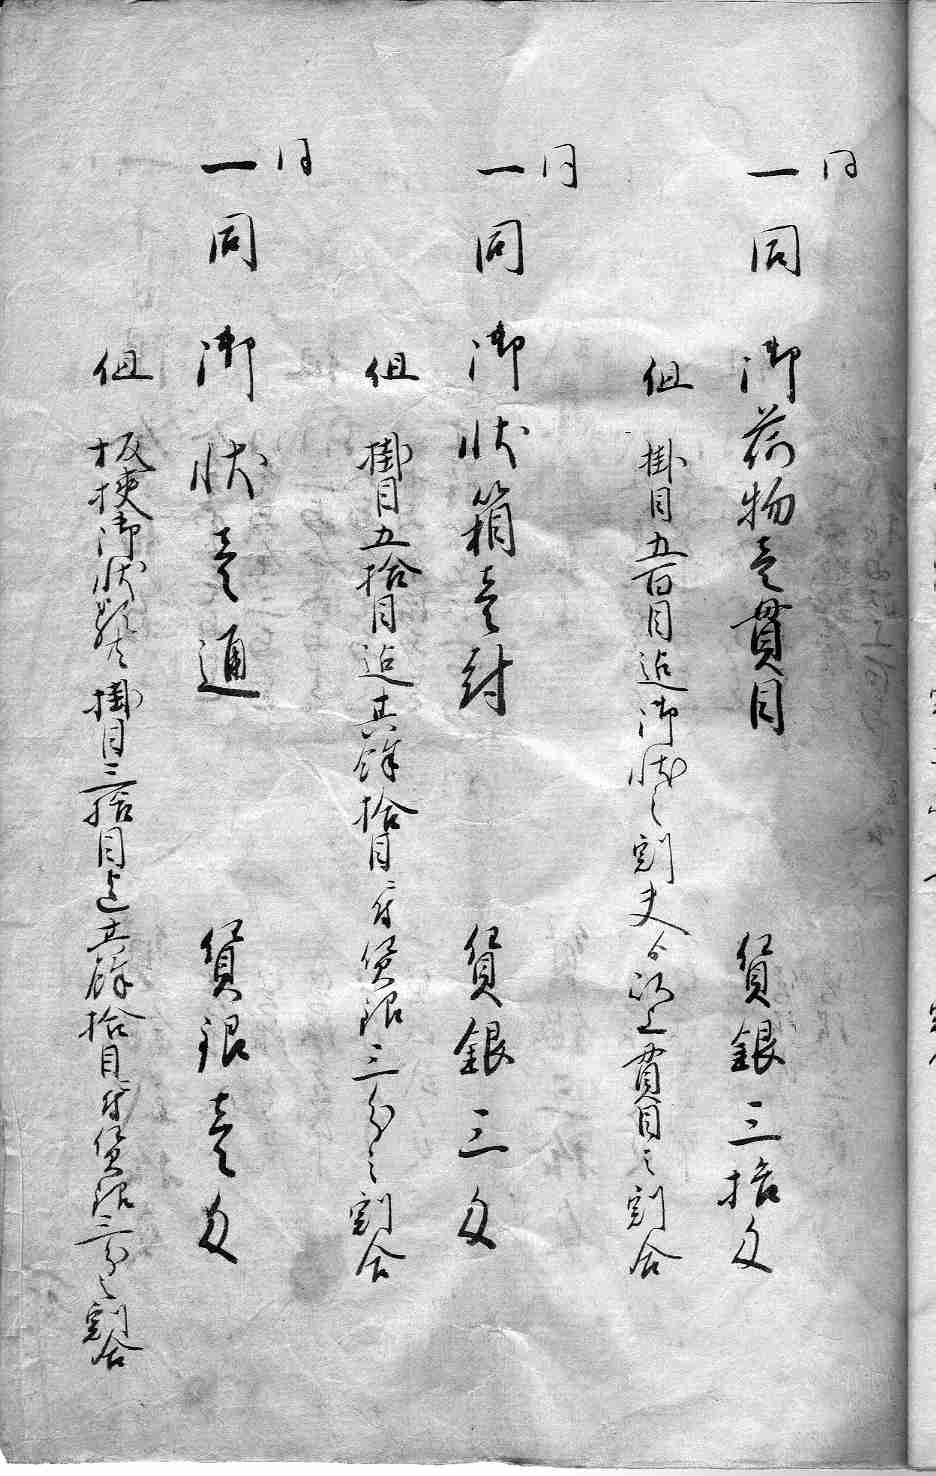 同
一同 御荷物壱貫目 賃銀三拾匁
但 掛目五百目迄御状之割夫ゟ以上貫目之割合
同
一同 御状箱壱封 賃銀三匁
但 掛目五拾目迄其余拾目ニ付賃銀三分之割合
同
一同 御状壱通 賃銀壱匁
但 板挟御状類は掛目三拾目迄其余拾目ニ付賃銀三分之割合